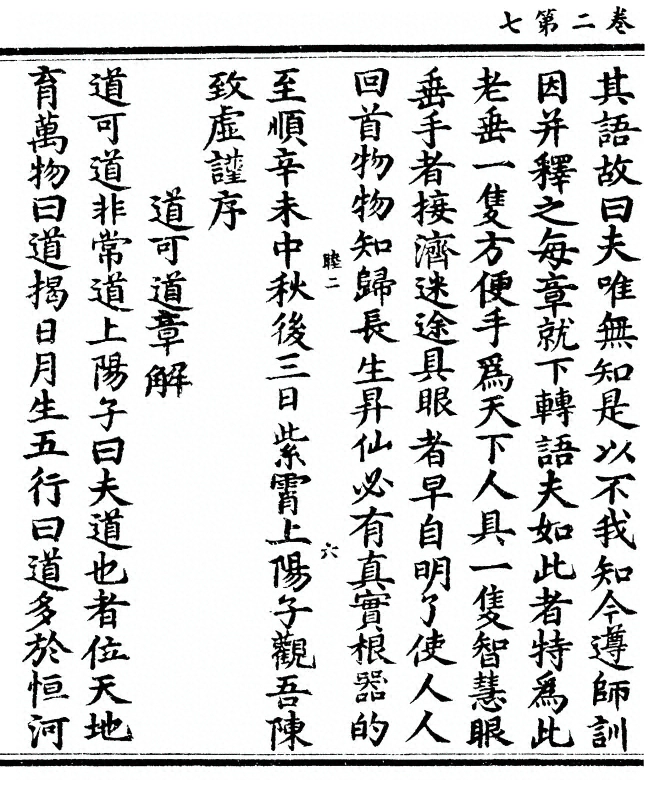 卷二第七
其語故曰夫唯無知是以不我知今遵師訓
因并釋之每章就下轉語夫如此者特爲此
老垂一隻方便手爲天下人具一隻智慧眼
垂手者接濟迷途具眼者早自明了使人人
回首物物知歸長生昇仙必有真實根器的
睦二 六
至順辛未中秋後三日紫霄上陽子觀吾陳
致虛謹序
道可道章解
道可道非常道上陽子曰夫道也者位天地
育萬物曰道揭日月生五行曰道多於恒河